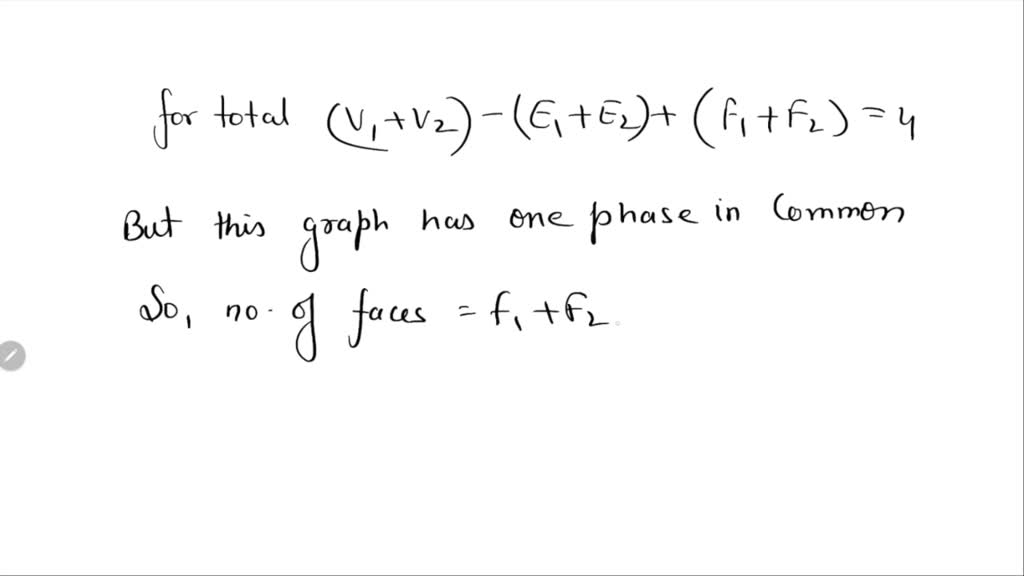 for total (V₁+V₂)-(E₁+E₂)+(f₁+F₂)=4
But this graph has one phase in Common
So, no. of faces = f₁+F₂